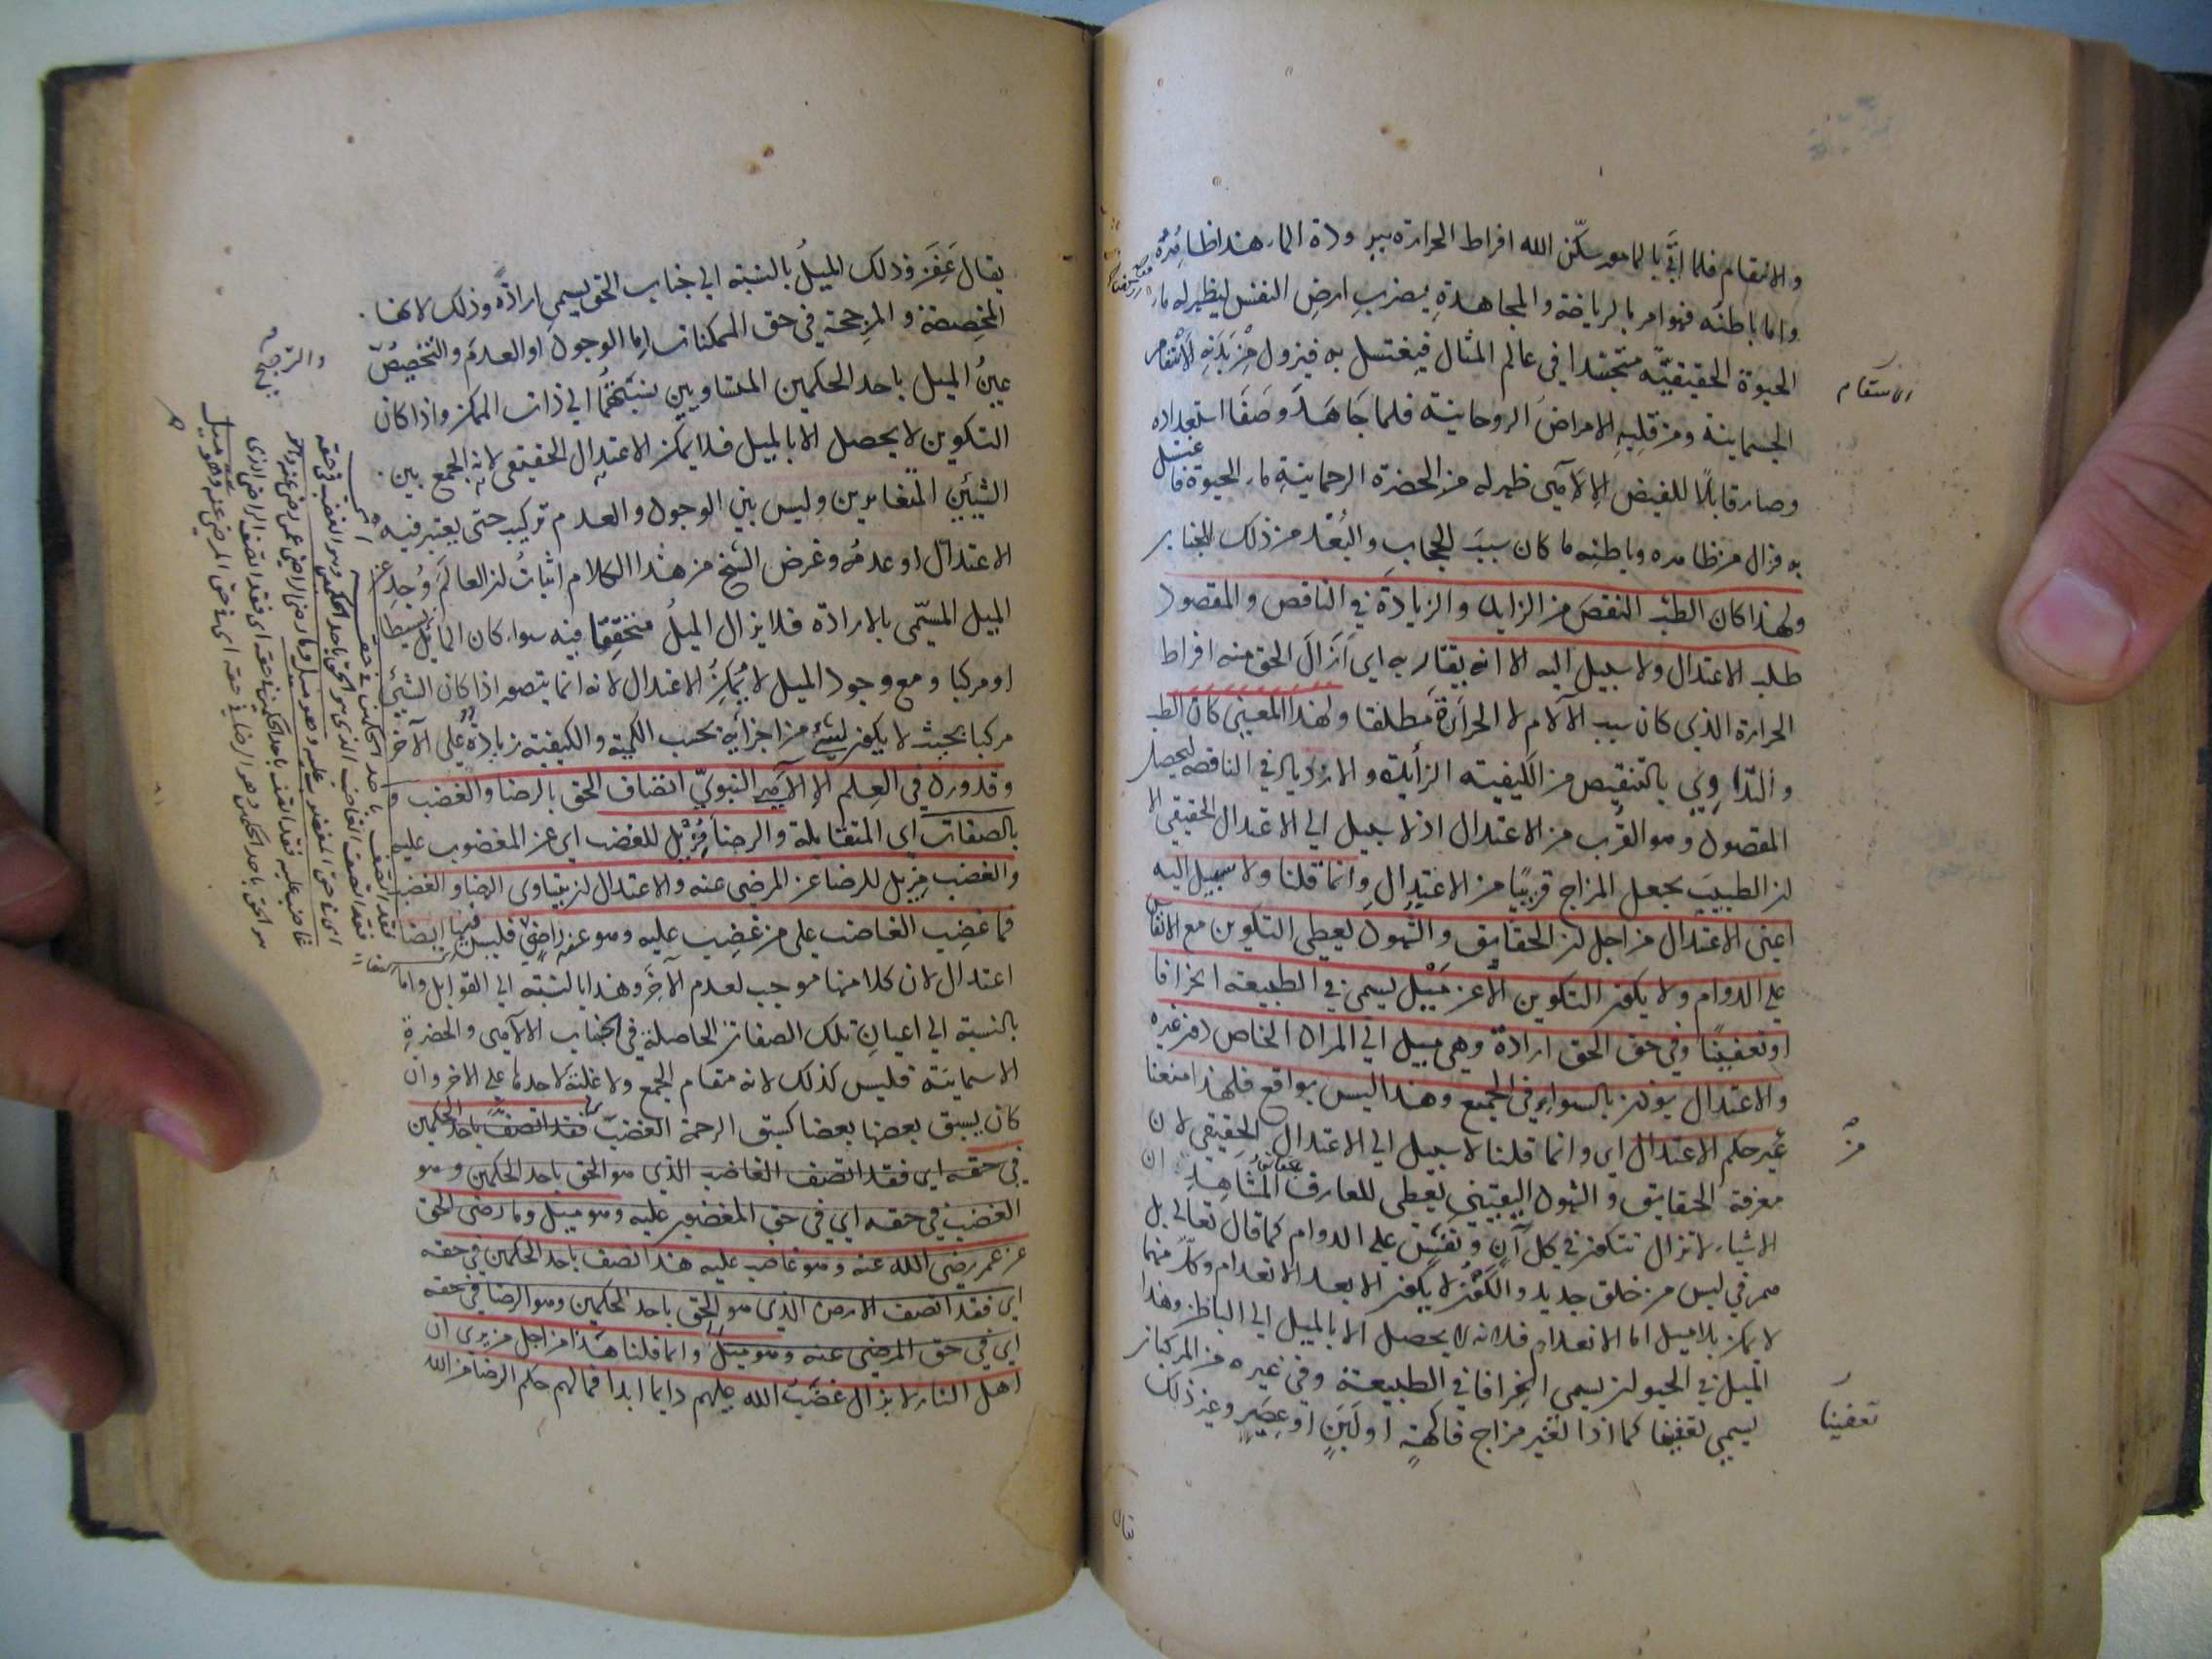 والاسقام فلما اتى بالمامور سكّن الله افراط الحرارة ببرودة الماء هذا ظاهره
واما باطنه فهو امر بالرياضة والمجاهدة بضرب ارض النفس ليظهر له ماء
الحيوة الحقيقيّة متجسّدا في عالم المثال فيغتسل به فيزول من بدنه الاسقام
الجسمانية ومن قلبه الامراض الروحانية فلما جَاهَدَ وصَفَا استعداده
وصار قابلًا للفيض الالاهي ظهر له من الحضرة الرحمانية ماء الحيوة فاغتسل
به فزال من ظاهره وباطنه ما كان سببَ الحجاب والبُعْد من ذلك الجناب
ولهذا كان الطبّ النقصَ من الزايد والزيادةَ في الناقص والمقصود
طلب الاعتدال ولا سبيل اليه الا انه يقاربه اي اَزَالَ الحق منه افراط
الحرارة الذي كان سبب الآلام لا الحرارةَ مطلقا ولهذا المعنى كان الطب
والتداوي بالتنقيص من الكيفية الزايدة والازدياد في الناقصة ليحصل
المقصود وهو القرب من الاعتدال اذ لا سبيل الى الاعتدال الحقيقي الا
ان الطبيب يجعل المزاج قريبًا من الاعتدال وانما قلنا ولا سبيل اليه
اعني الاعتدال من اجل ان الحقايق والشهود يعطي التكوين مع الانفاس
على الدوام ولا يكون التكوين الّا عن مَيْل يسمى في الطبيعة انحرافا
او تعفينًا وفي حق الحق ارادةً وهي ميل الى المراد الخاص دون غيره
والاعتدال يوذن بالسواء في الجميع وهذا ليس بواقع فلهذا منعنا
من حكم الاعتدال اي وانما قلنا لا سبيل الى الاعتدال الحقيقي لان
معرفة الحقايق والشهود اليقيني يعطي للعارف المشاهد ان
الاشياء لا تزال تتكون في كل آنٍ وتفنى على الدوام كما قال تعالى بل
هم في لبس من خلق جديد والكون لا يكون الا بعد الانعدام وكلّ منهما
لا يمكن بلا ميل اما الانعدام فلانه لا يحصل الا بالميل الى الباطن وهذا
الميل في الحيوان يسمى انحرافا في الطبيعة وفي غيره من المركبات
يسمى تعفينا كما اذا تغير مزاج فاكهةٍ او لَبَنٍ او عصيرٍ وغير ذلك
الاسقام
تعفينا
يقال
يقال عَفِنَ وذلك الميلُ بالنسبة الى جناب الحق يسمى ارادةً وذلك لانها
المخصِصة والمرجحة في حق الممكنات اما الوجود او العدم والتخصيصُ
والترجيح
عينُ الميل باحد الحكمين المتساويين نسبتُهما الى ذات الممكن واذا كان
التكوين لا يحصل الا بالميل فلا يمكن الاعتدال الحقيقي لانه الجمع بين
الشيئين المتغايرين وليس بين الوجود والعدم تركيب حتى يعتبر فيه
الاعتدال او عدمُه وغرض الشيخ من هذا الكلام اثباتُ ان العالَم وُجد عن
الميل المسمّى بالارادة فلا يزال الميلُ متحققا فيه سواء كان المايل بسيطا
او مركبا ومع وجود الميل لا يمكن الاعتدال لانه انما يتصور اذا كان الشيئ
مركبا بحيث لا يكون لشيئ من اجزائه بحسب الكمية والكيفية زيادةٌ على الآخر
وقد ورد في العلم الالاهي النبويّ اتصاف الحق بالرضا والغضب و
بالصفات اي المتقابلة والرضا مُزيل للغضب اي عن المغضوب عليه
والغضب مزيل للرضا عن المرضي عنه والاعتدال ان يتساوى الرضا والغضب
فما غضب الغاضب على من غضب عليه وهو عنه راضٍ فليس فيهما ايضا
اعتدال لان كلا منهما موجب لعدم الآخر وهذا بالنسبة الى القوابل واما
بالنسبة الى اعيان تلك الصفات الحاصلة في الجناب الالاهي والحضرة
الاسمائية فليس كذلك لانه مقام الجمع ولا غلبة لاحدها على الاخر وان
كان يسبق بعضها بعضا كسبق الرحمة الغضب فقد اتصف باحد الحكمين
في حقه اي فقد اتصف الغاضب الذي هو الحق باحد الحكمين وهو
الغضب في حقه اي في حق المغضوب عليه وهو ميل وما رضى الحق
عن عمر رضي الله عنه وهو غاضب عليه هذا اتصف باحد الحكمين في حقه
اي فقد اتصف الراضي الذي هو الحق باحد الحكمين وهو الرضا في حقه
اي في حق المرضي عنه وهو ميل وانما قلنا هذا من اجل من يرى ان
اهل النار لا يزال غضبُ الله عليهم دايما ابدا فما لهم حكم الرضا من الله
فقد اتصف باحد الحكمين في حقه
فقد اتصف الغاضب الذي هو الحق باحد الحكمين وهو الغضب في حقه
اي في حق المغضوب عليه وهو ميل وما رضى الراضي عمن رضى عنه وهو
غاضب عليه فقد اتصف باحد الحكمين في حقه اي فقد اتصف الراضي الذي
هو الحق باحد الحكمين وهو الرضا في حقه اي في حق المرضي عنه وهو ميل